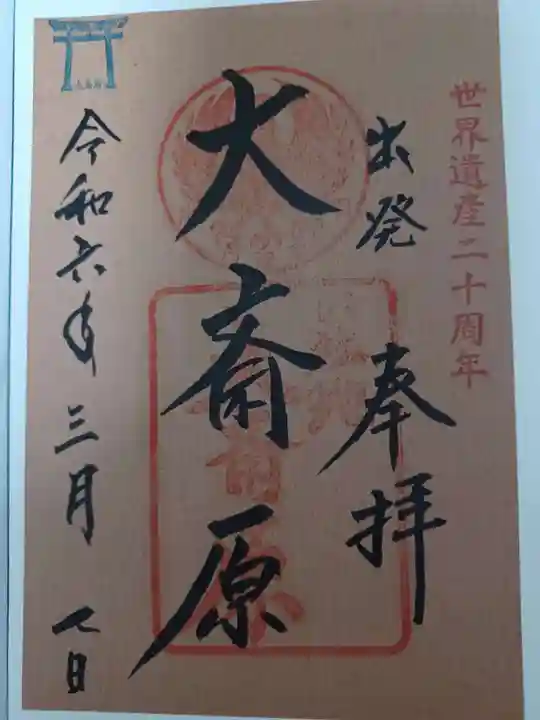 世界遺産二十周年
出発 奉拝
大斎原
令和六年三月七日